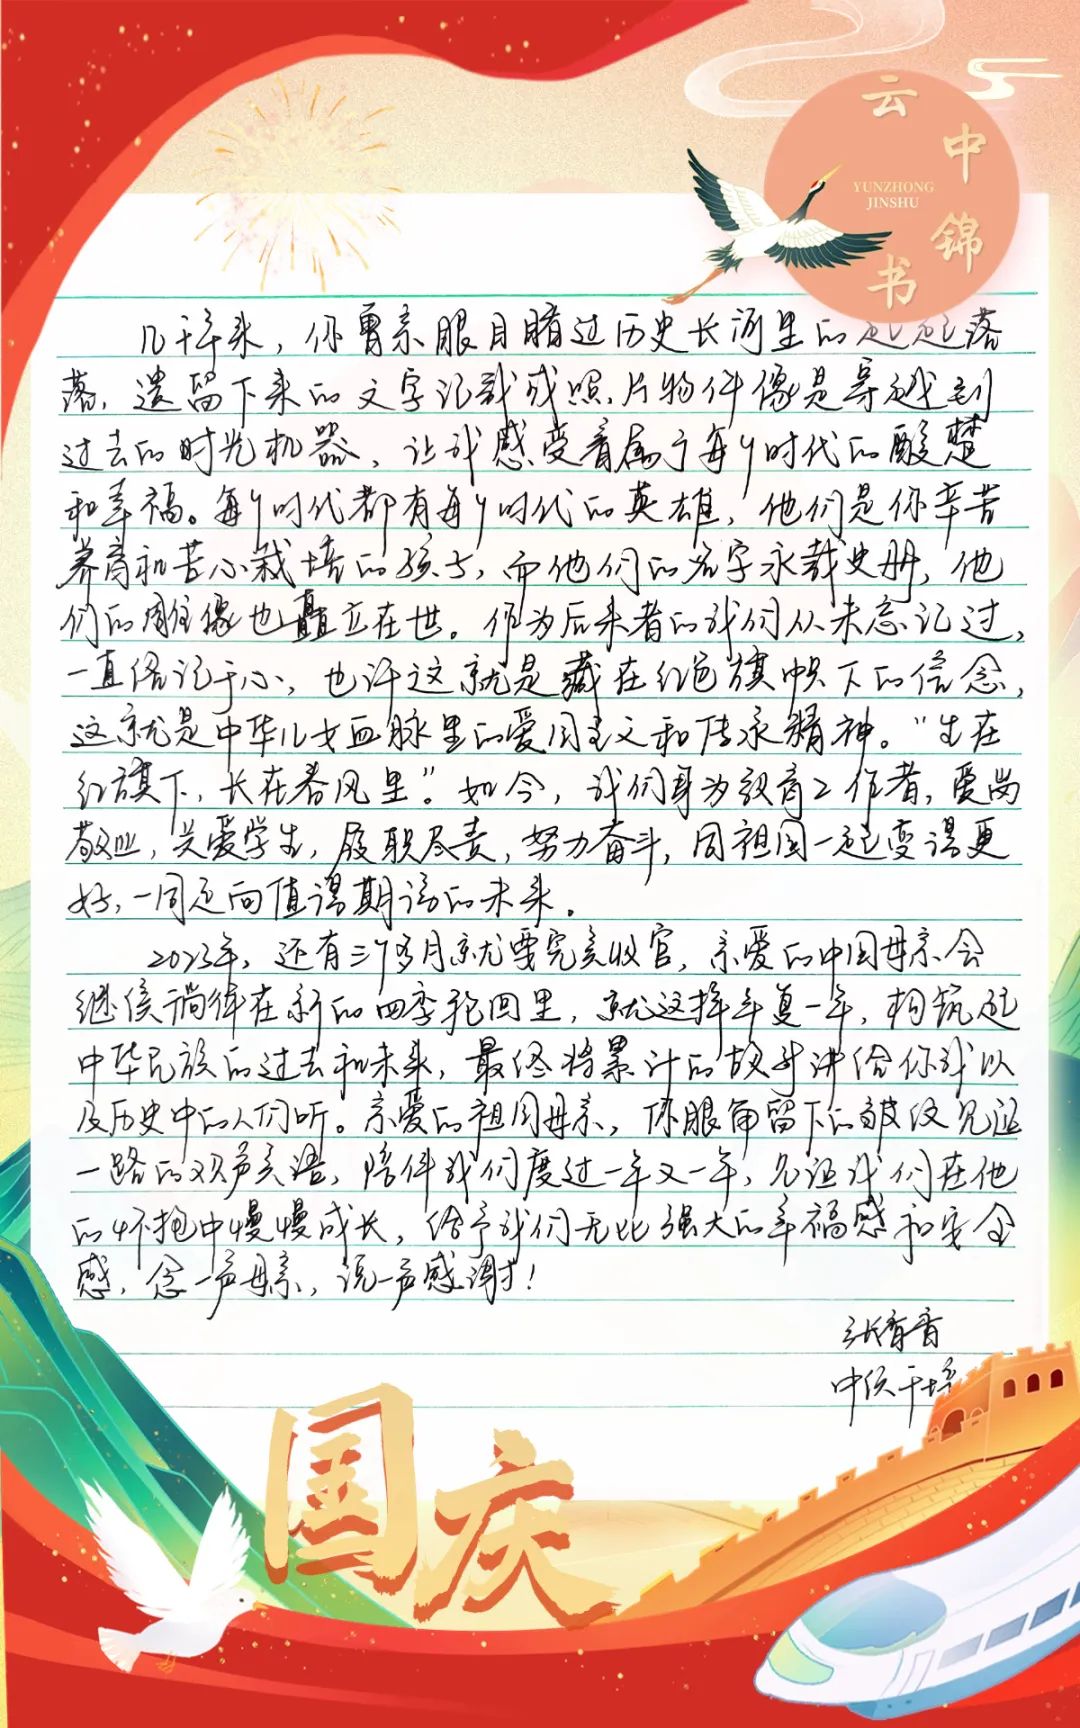 云中锦书
YUNZHONG
JINSHU
几千年来，你曾亲眼目睹过历史长河里的起起落
落，遗留下来的文字记载或照片物件像是穿越到
过去的时光机器，让我感受着属于每个时代的酸楚
和幸福。每个时代都有每个时代的英雄，他们是你辛苦
养育和苦心栽培的孩子，而他们的名字永载史册，他
们的雕像也矗立在世。作为后来者的我们从未忘记过，
一直铭记于心，也许这就是藏在红色旗帜下的信念，
这就是中华儿女血脉里的爱国主义和传承精神。“生在
红旗下，长在春风里”。如今，我们身为教育工作者，爱岗
敬业，关爱学生，履职尽责，努力奋斗，同祖国一起变得更
好，一同走向值得期待的未来。
2023年，还有三个多月就要完美收官，亲爱的中国母亲会
继续徜徉在新的四季轮回里，就这样年复一年，构筑起
中华民族的过去和未来，最终将累计的故事讲给你我以
及历史中的人们听。亲爱的祖国母亲，你眼角留下的皱纹见证
一路的欢声笑语，陪伴我们度过一年又一年，见证我们在他
的怀抱中慢慢成长，给予我们无比强大的幸福感和安全
感，念一声母亲，说一声感谢！
张香香
中侯干培
国庆